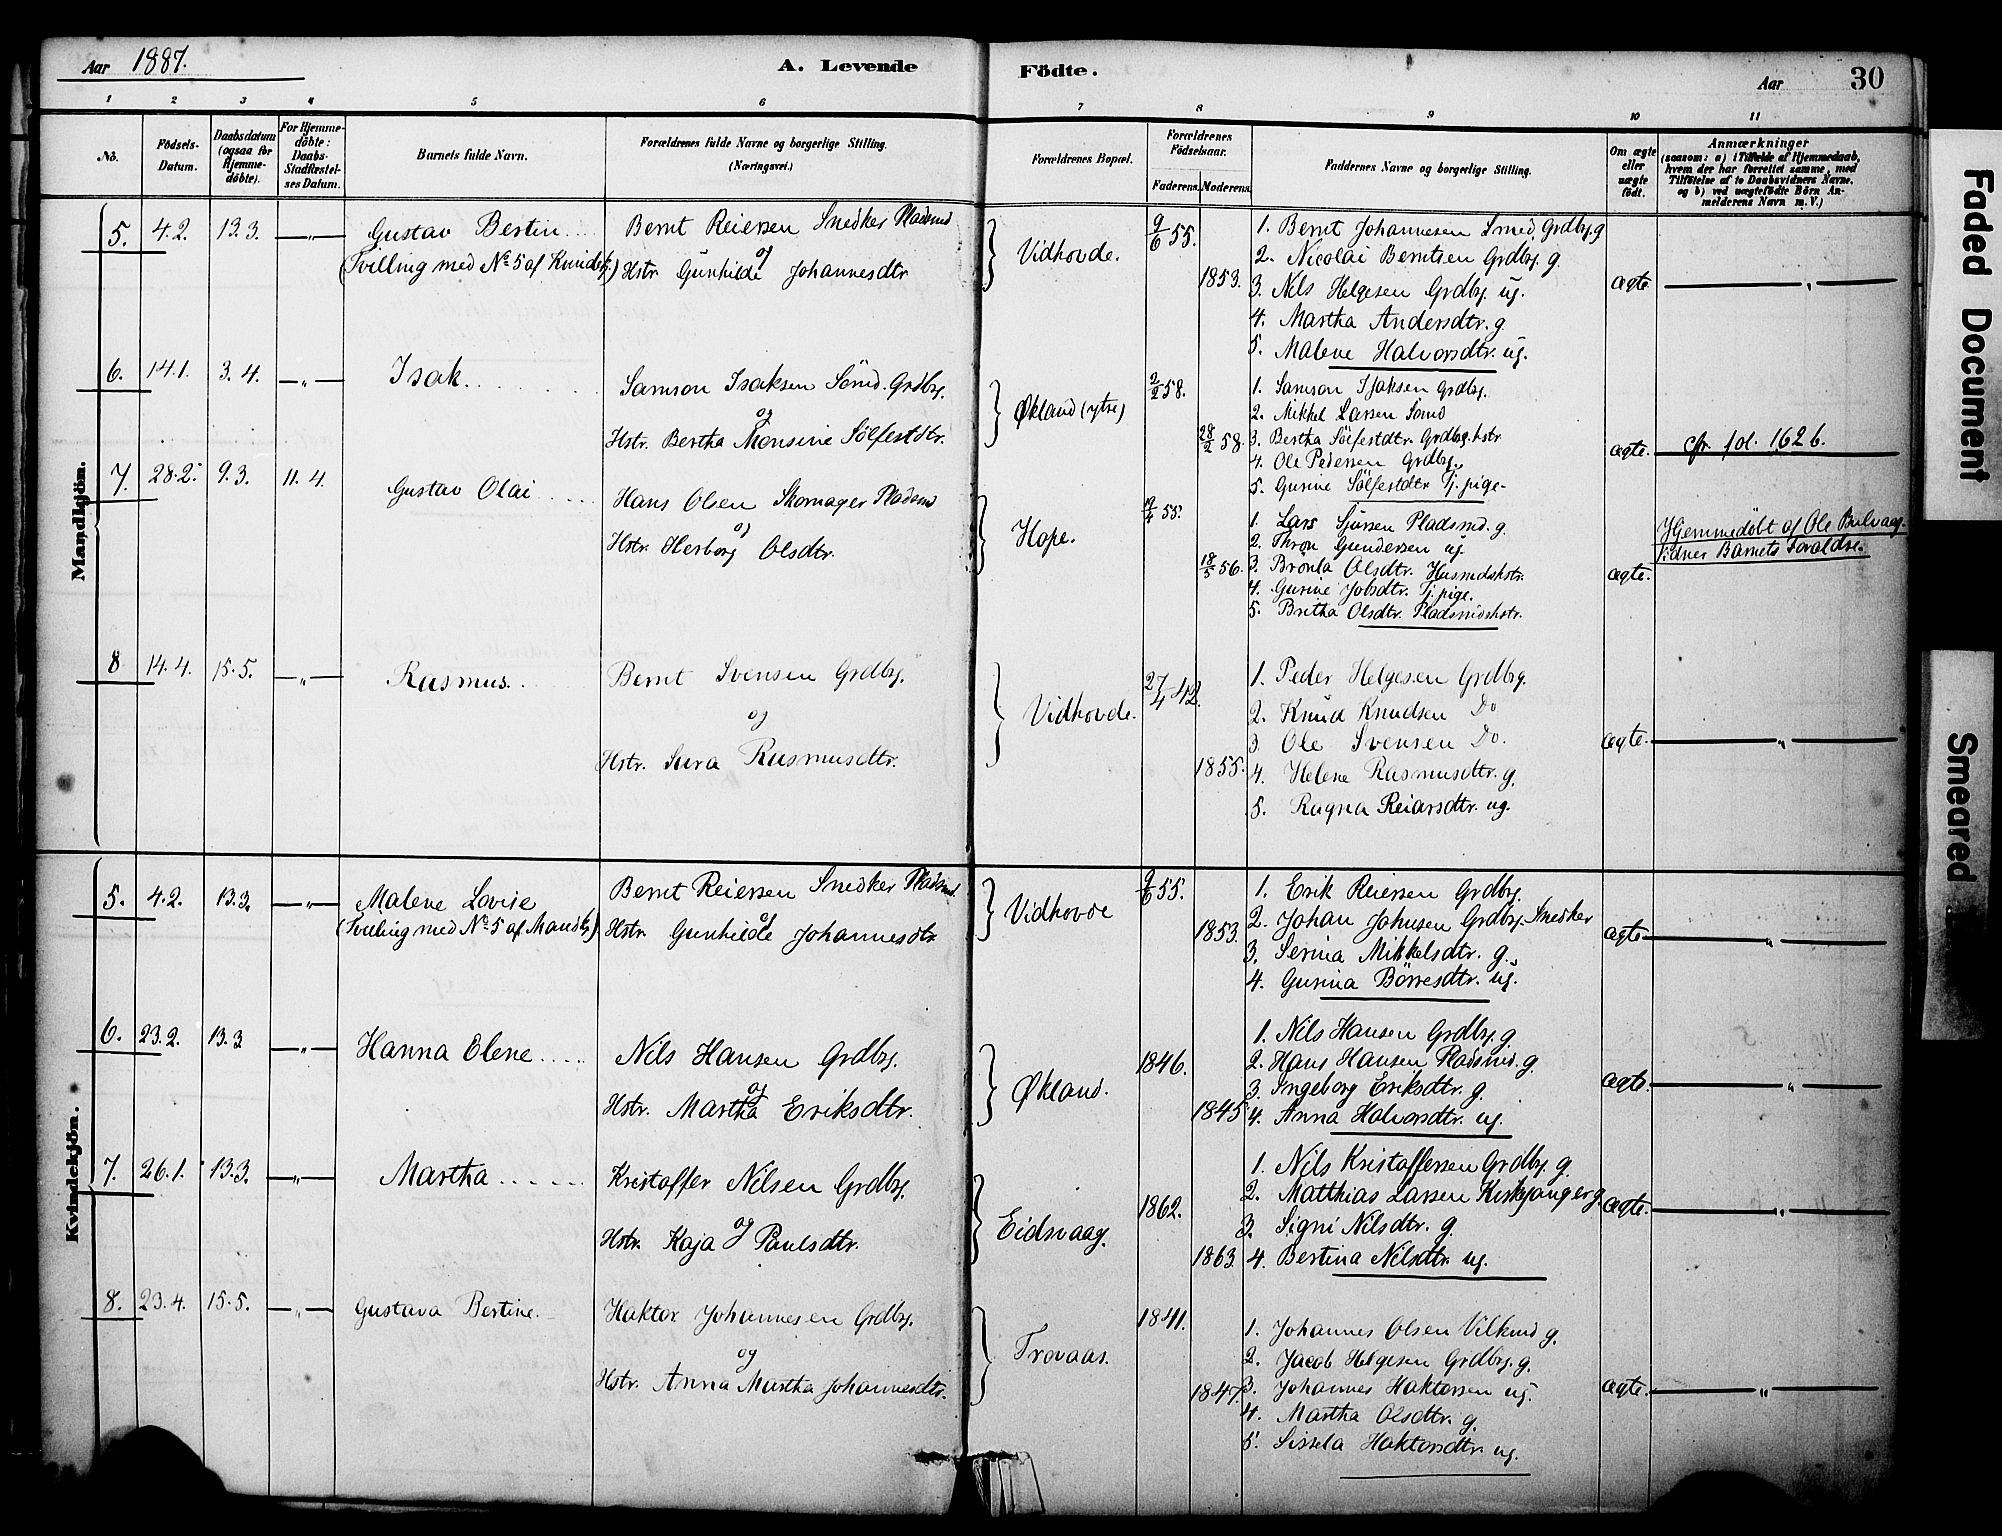 Aar 1887.
A. Levende Födte.
Aar
30
1 2 3 4 5 6 7 8 9 10 11
No.
Födsels-Datum.
Daabsdatum (ogsaa for Hjemme-döbte).
For Hjemme-döbte: Daabs-Stadfæstel-ses Datum.
Barnets fulde Navn.
Forældrenes fulde Navne og borgerlige Stilling.
(Næringsvei.)
Forældrenes Bopæl.
Forældrenes Födselsaar.
Faderens. Moderens.
Faddernes Navne og borgerlige Stilling.
Om ægte eller uægte født.
Anmærkninger
(saasom: a) i Tilfælde af Hjemmedaab, hvem der har forrettet samme, med Tilføielse af to Daabsvidners Navne, og b) ved uægtefødte Börn An-melderens Navn m. V.)
Mandkjön.
5. 4.2. 13.3. —„— Gustav Bertin
(Tvilling med No 5 af Kvindek.)
Bernt Reiersen Snedker Pladsmd
og
Hstr. Gunhilde Johannesdtr
Vidhovde.
9/6 55.
1853.
1. Bernt Johannesen Smed, Grdbg. g
2. Nicolai Berntsen Grdbg. g.
3. Nils Helgesen Grdbg. ug.
4. Martha Andersdtr. g.
5. Malene Halvorsdtr. ug.
ægte —„—
6. 14.1. 3.4. —„— Isak
Samson Isaksen Sömd. Grdbg.
og
Hstr. Bertha Monsine Sölfestdtr.
Økland (ytre)
2/2 58.
28/2 58.
1. Samson Isaksen Grdbg.
2. Mikkel Larsen Sömd
3. Bertha Sölfestdtr. Grdbg. hstr
4. Ole Pedersen Grdbg.
5. Gurine Sölfestdtr Tj. pige.
ægte. cfr. fol. 162 6.
7. 28.2. 9.3. 11.4. Gustav Olai
Hans Olsen Skomager Pladsmd
og
Hstr. Herborg Olsdtr.
Hope.
55.
18/5 56.
1. Lars Sjursen Pladsmd. g.
2. Thron Gundersen ug.
3. Brönla Olsdtr. Husmdshstr.
4. Gurine Jobsdtr. Tj. pige.
5. Britha Olsdtr. Pladsmdshstr.
ægte.
Hjemmedöbt af Ole Bulvaag.
Vidner Barnets Forældre.
8 14.4. 15.5. —„— Rasmus.
Bernt Svensen Grdbg.
og
Hstr. Sura Rasmusdtr.
Vidhovde.
27/4 42.
1855.
1. Peder Helgesen Grdbg.
2. Knud Knudsen Do
3. Ole Svensen Do.
4. Helene Rasmusdtr. g.
5. Ragna Reiarsdtr. ug.
ægte. —„—
Kvindekjön.
5. 4.2. 13.3. —„— Malene Lovise
(Tvilling med No 5 af Mandk.)
Bernt Reiersen Snedker Pladsmd
og
Hstr. Gunhilde Johannesdtr
Vidhovde
9/6 55.
1853.
1. Erik Reiersen Grdbg.
2. Johan Johnsen Grdbg. Snedker
3. Serina Mikkelsdtr. g.
4. Gurina Börresdtr. ug.
ægte —„—
6. 23.2. 13.3 —„— Hanna Elene
Nils Hansen Grdbg.
og
Hstr. Martha Eriksdtr.
Økland.
1846.
1845
1. Nils Hansen Grdbg. g.
2. Hans Hansen Pladsmd. g.
3. Ingeborg Eriksdtr. g.
4. Anna Halvorsdtr. ug.
ægte. —„—
7. 26.1. 13.3. —„— Martha
Kristoffer Nilsen Grdbg.
og
Hstr. Kaja Paulsdtr.
Eidsvaag.
1862.
1863.
1. Nils Kristoffersen Grdbg. g.
2. Matthias Larsen Kirkesanger g.
3. Signi Nilsdtr. g.
4. Bertina Nilsdtr. ug.
ægte. —„—
8. 23.4. 15.5. —„— Gustava Bertine.
Haktor Johannesen Grdbg.
og
Hstr. Anna Martha Johannesdtr.
Trovaas.
1841.
1847.
1. Johannes Olsen Vilkmd g.
2. Jacob Helgesen Grdbg. g.
3. Johannes Haktorsen ug.
4. Martha Olsdtr. g.
5. Sissela Haktorsdtr. ug.
ægte. —„—
Faded Document
Smeared